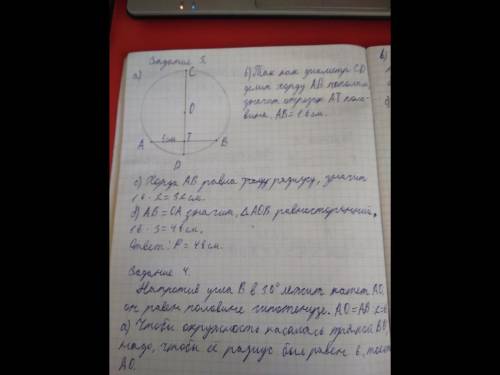 Задание 3.
а)
C
O
8см
T
A
B
D
б) Так как диаметр CD
делит хорду AB пополам,
значит отрезок AT поло-
вина. AB = 16 см.
с) Хорда AB равна радиусу, значит
16 · 2 = 32 см.
d) AB = OA значит, △AOB равносторонний,
16 · 3 = 48 см.
Ответ: P = 48 см.
Задание 4.
Напротив угла B в 30° лежит катет AO,
он равен половине гипотенузе. AO = AB
а) Чтобы окружность касалась прямой
надо, чтобы её радиус был равен 6,
AO.
в)